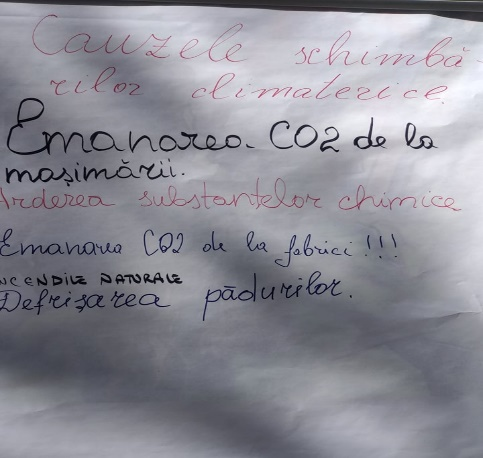 Cauzele schimbă-
rilor climaterice
Emanarea CO2 de la
mașinării.
Arderea substanțelor chimice
Emanarea CO2 de la fabrici!!!
INCENDILE NATURALE
Defrișarea pădurilor.